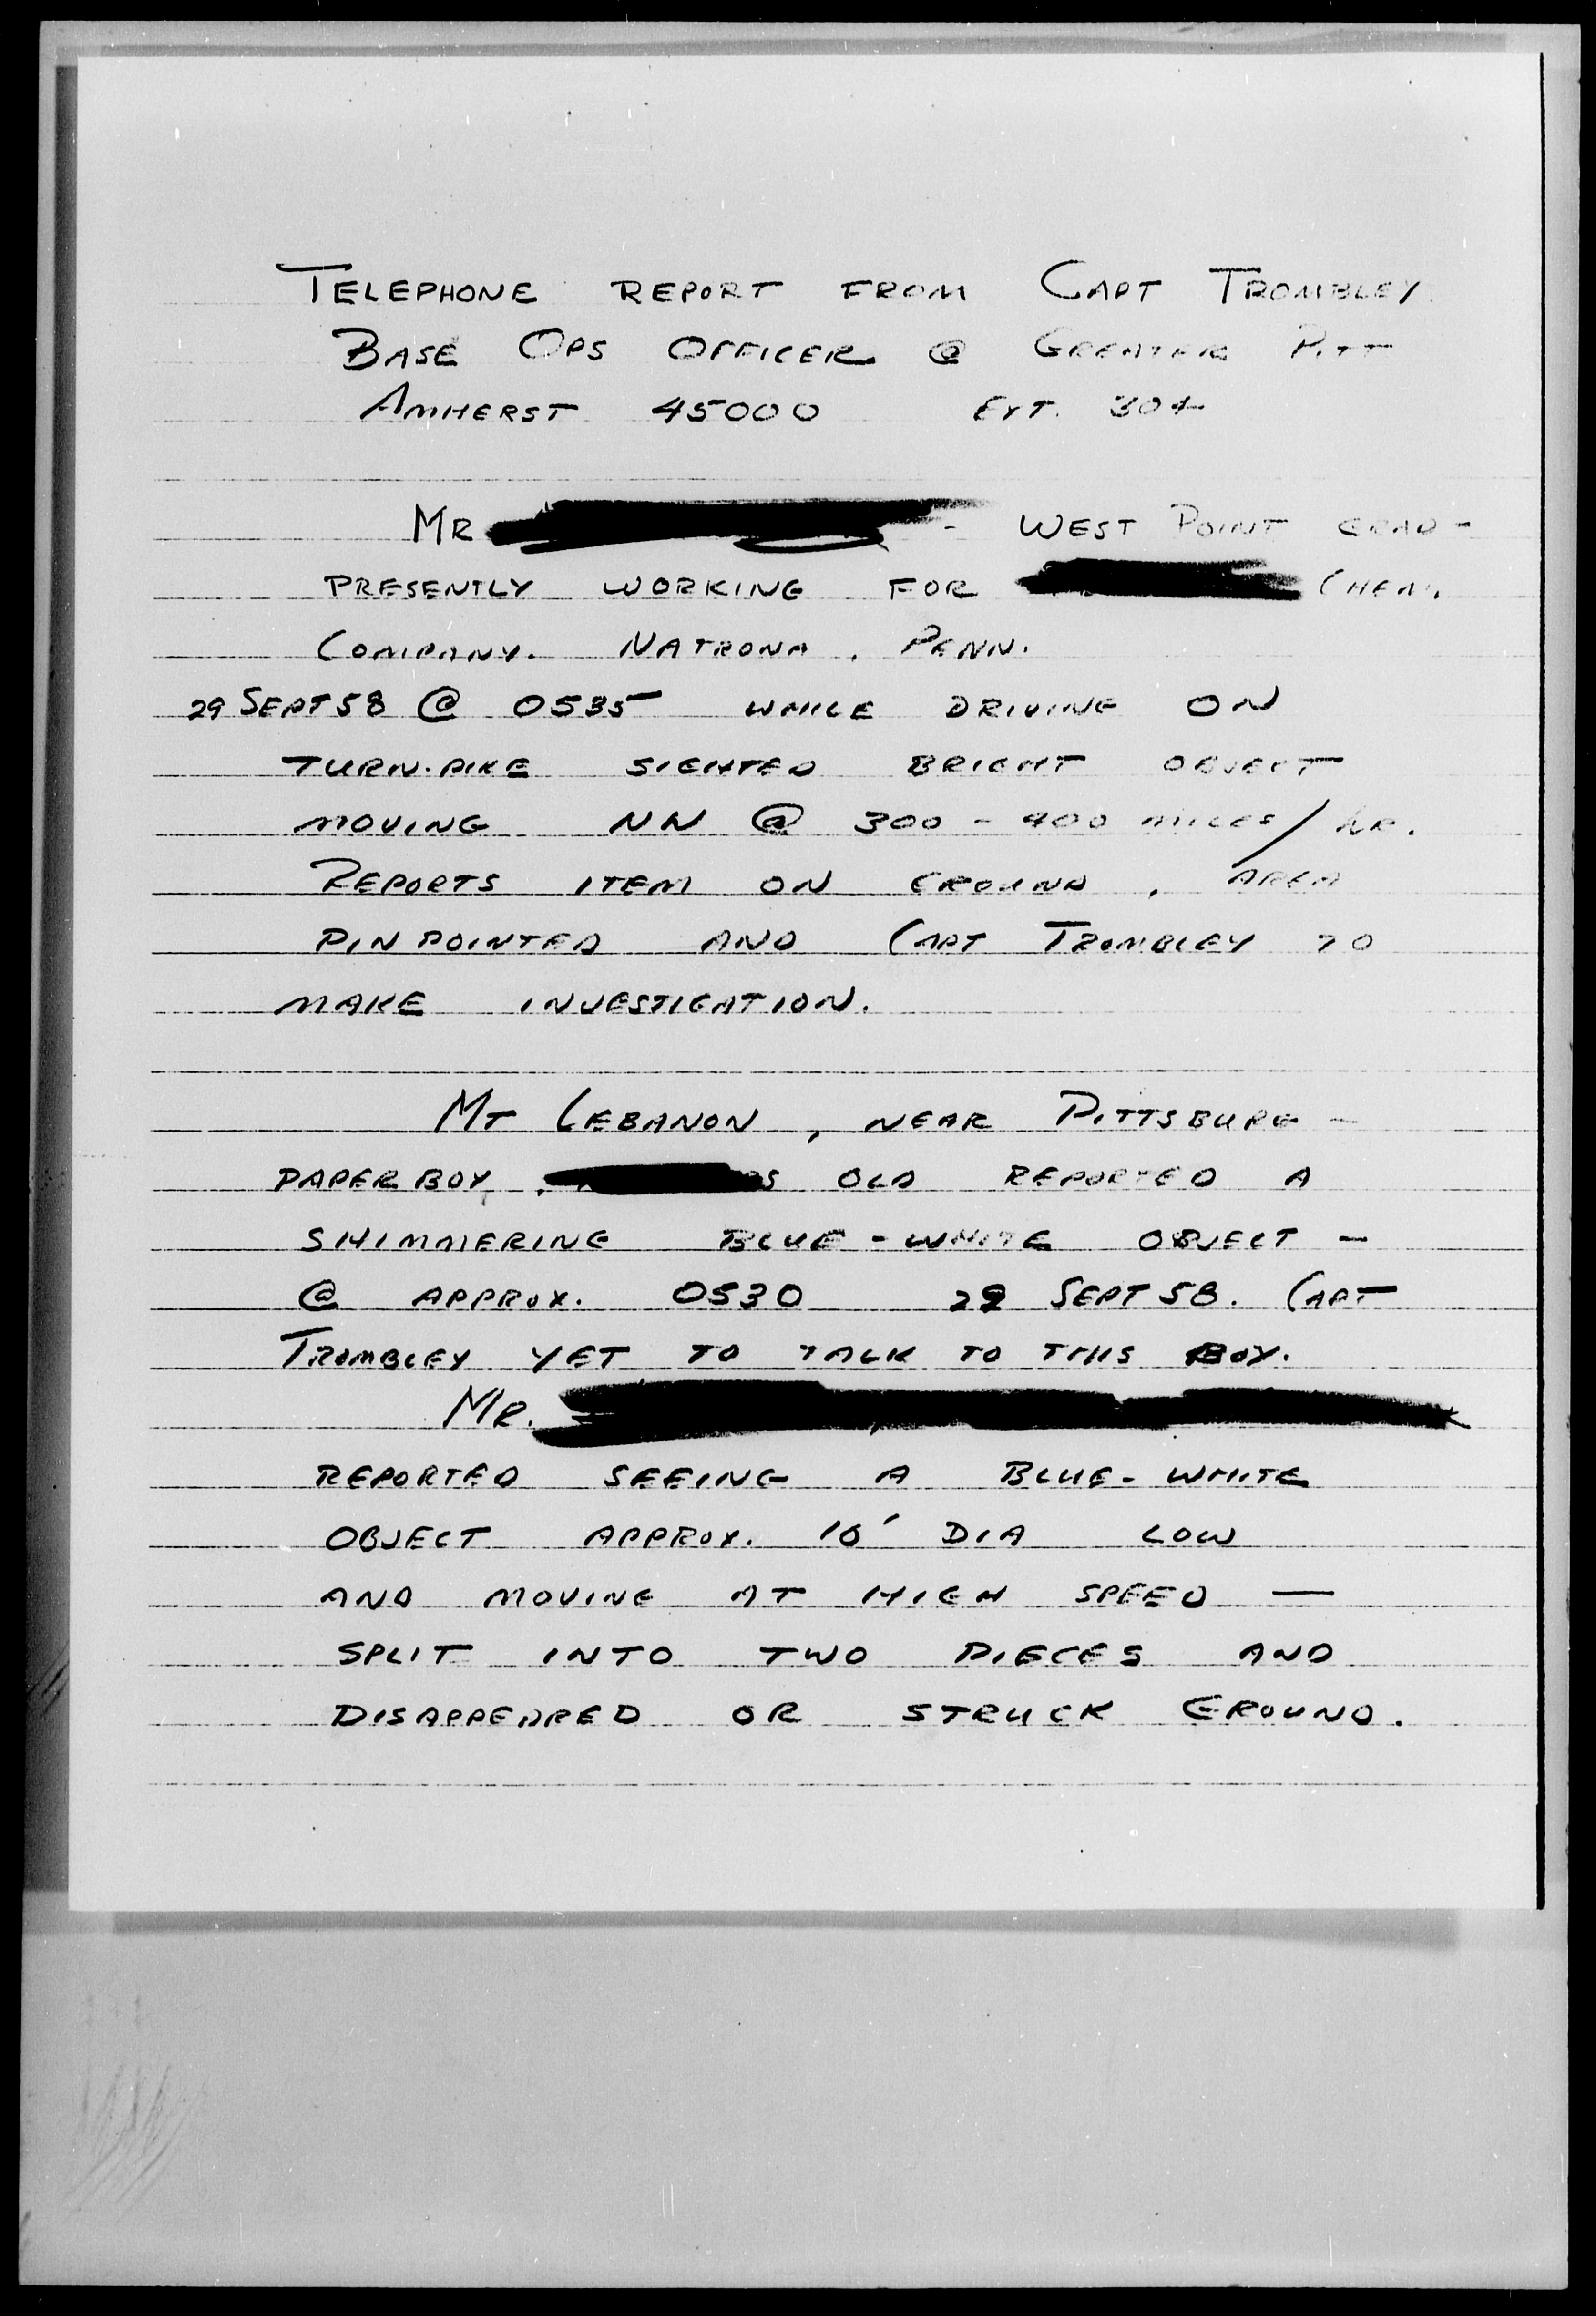 TELEPHONE REPORT FROM CAPT TROMBLEY
BASE OPS OFFICER @ GREATER PITT
AMHERST 45000 EXT. 304
MR - WEST POINT GRAD -
PRESENTLY WORKING FOR CHEM.
COMPANY. NATRONA, PENN.
29 SEPT 58 @ 0535 WHILE DRIVING ON
TURN-PIKE SIGHTED BRIGHT OBJECT
MOVING NW @ 300 - 400 MILES/HR.
REPORTS ITEM ON GROUND, AREA
PINPOINTED AND CAPT TROMBLEY TO
MAKE INVESTIGATION.
MT LEBANON, NEAR PITTSBURG -
PAPER BOY, OLD REPORTED A
SHIMMERING BLUE-WHITE OBJECT -
@ APPROX. 0530 29 SEPT 58. CAPT
TROMBLEY YET TO TALK TO THIS BOY.
MR.
REPORTED SEEING A BLUE-WHITE
OBJECT APPROX. 10' DIA LOW
AND MOVING AT HIGH SPEED —
SPLIT INTO TWO PIECES AND
DISAPPEARED OR STRUCK GROUND.